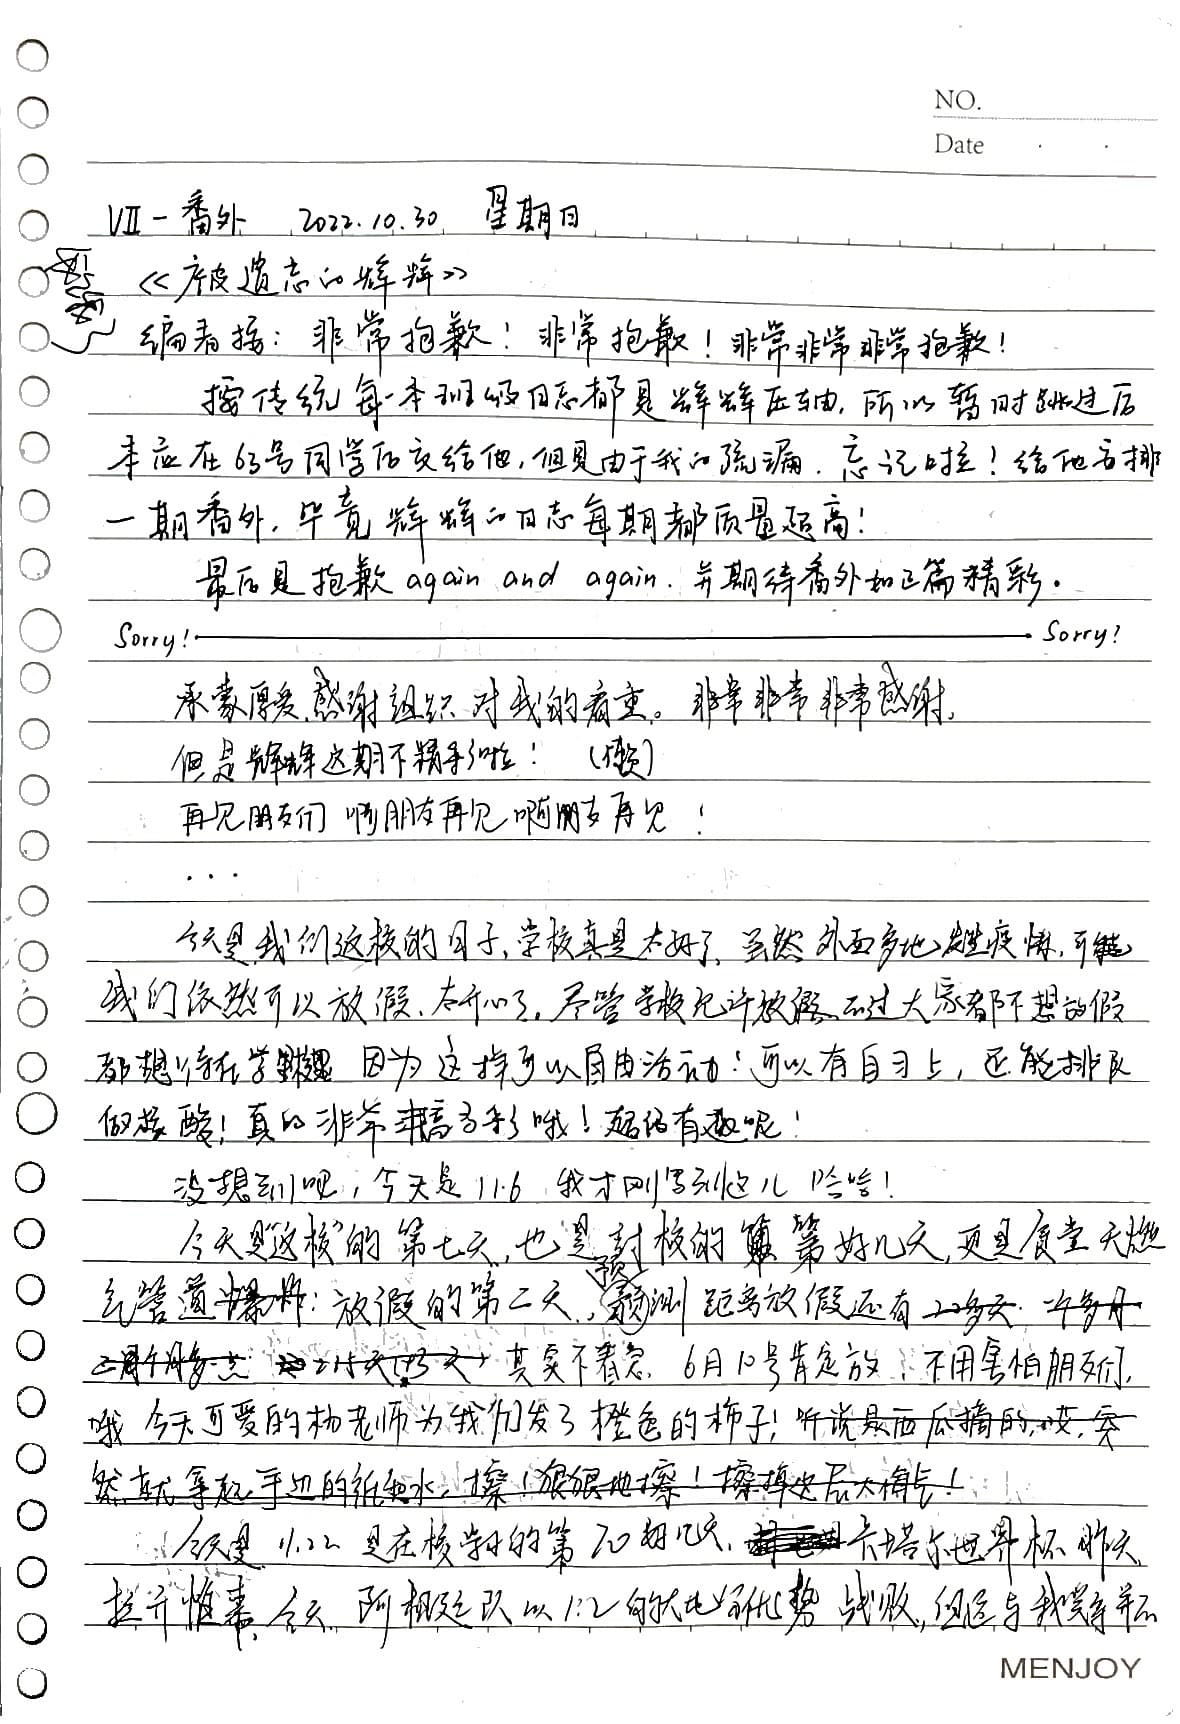 NO.
Date
VII-番外 2022.10.30 星期日
《被遗忘的辉辉》
编者按：非常抱歉！非常抱歉！非常非常非常抱歉！
按传统每一本班级日志都是辉辉压轴，所以暂时跳过后
本应在63号同学后交给他，但是由于我的疏漏，忘记啦！给他安排
一期番外，毕竟辉辉的日志每期都质量超高！
最后是抱歉again and again．并期待番外如正篇精彩。
Sorry! Sorry?
承蒙厚爱，感谢组织对我的看重。非常非常非常感谢，
但是辉辉这期不精彩啦！（懒）
再见朋友们 啊朋友再见 啊朋友再见！
...
今天是我们返校的日子，学校真是太好了，虽然外面多地发生疫情，可能
我们依然可以放假，太开心了，尽管学校允许放假，不过大家都不想放假
都想待在学校里 因为这样可以自由活动！可以有自习上，还能排队
做核酸！真的非常丰富多彩哦！超级有趣呢！
没想到吧，今天是11.6 我才刚写到这儿 哈哈！
今天是“返校”的第七天，也是封校的第好几天，更是食堂天燃
气管道爆炸：放假的第二天，预测距离放假还有 22多天 一个多月
其实不着急，6月10号肯定放！不用害怕朋友们，
哦 今天可爱的杨老师为我们发了橙色的柿子！听说是西瓜摘的，哎，突
然就拿起手边的纸和水，擦！狠狠地擦！擦掉
今天是11.22 是在校学习的第20好几天，卡塔尔世界杯昨天，
拉开帷幕，今天 阿根廷队以1:2的大比分优势战败，但这与我等并不
MENJOY